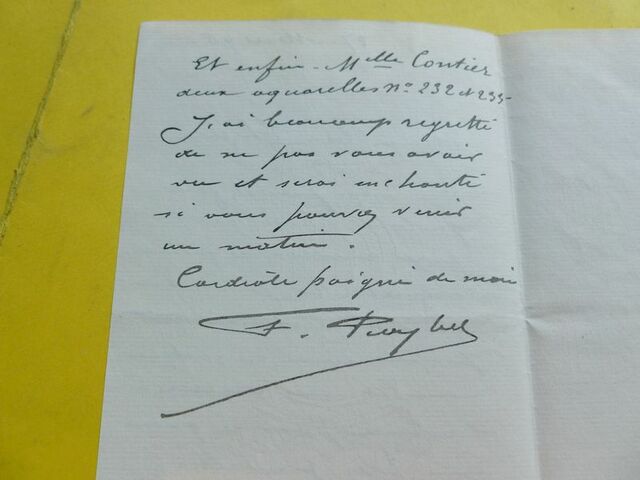 Et enfin - Mlle Contier
deux aquarelles No 232 et 235
J'ai beaucoup regretté
de ne pas vous avoir
vu et serai enchanté
si vous pouvez venir
un matin.
Cordiale poignée de main
F.